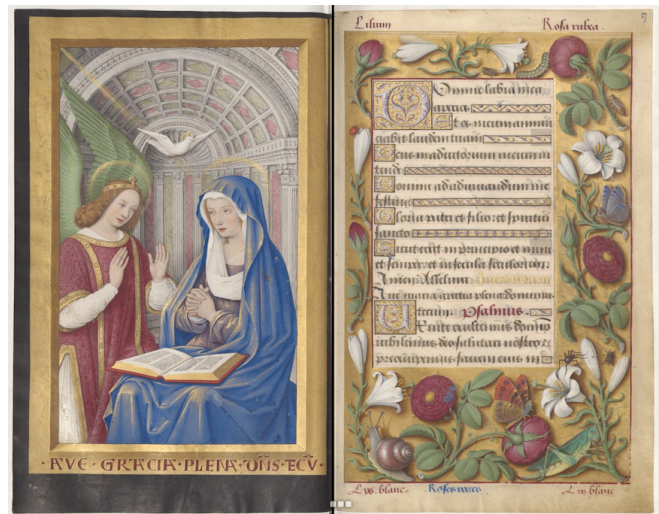 · AVE · GRACIA · PLENA · DÑS · TECV ·
Lilium
Rosa rubea.
Domine labia mea
aperies
Et os meum annun
ciabit laudem tuam
Deus in adiutorium meum in
tende
Domine ad adiuuandum me
festina
Gloria patri et filio et spiritui
sancto
Sicut erat in principio et
et semper et in secula seculorum
Amen. Alleluia.
Aue maria gratia plena dominus
tecum. Psalmus.
Uenite exultemus domino
iubilemus deo salutari nostro
preoccupemus faciem eius in
Lys blanc.
Roses
Lis blanc